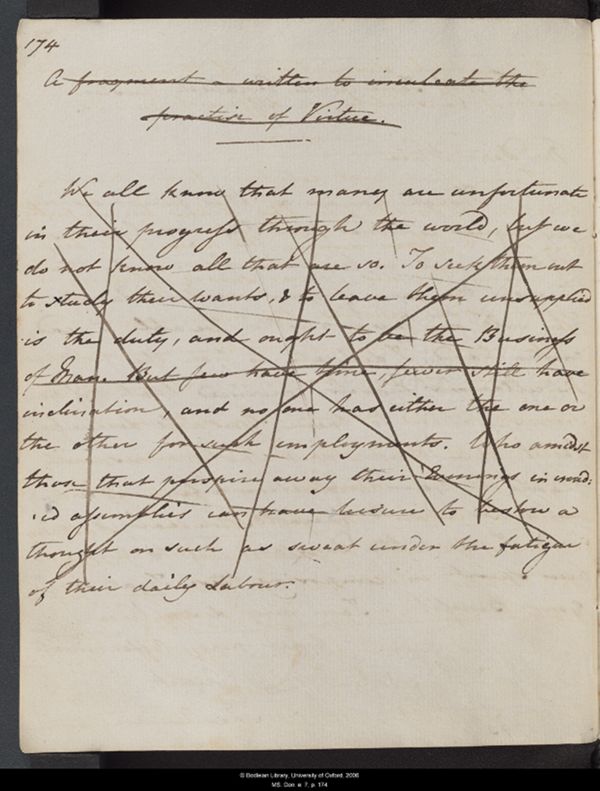 174
A fragment - written to inculcate the
practise of Virtue.
We all know that many are unfortunate
in their progress through the world, but we
do not know all that are so. To seek them out
to study their wants, & to leave them unsupplied
is the duty, and ought to be the Business
of Man. But few have time, fewer still have
inclination, and no one has either the one or
the other for such employments. Who amidst
those that perspire away their Evenings in croud:
:ed assemblies can have leisure to bestow a
thought on such as sweat under the fatigue
of their daily Labour.
© Bodleian Library, University of Oxford, 2006
MS. Don. e. 7, p. 174